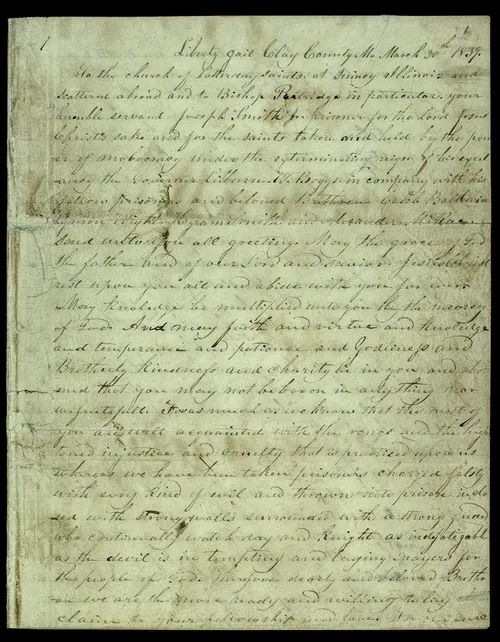 1
Liberty jail Clay County Mo March 20th 1839.
To the church of Latterday saints at Quincy Illinois and
scattered abroad and to Bishop Partridge in particular. your
humble servant Joseph Smith Jr prisoner for the Lord Jesus
Christ's sake and for the saints taken and held by the pow
er of mobocracy under the exterminating reign of his excel
ancy the Governer Lilburn W. Boggs in company with his
fellow prisoners and beloved Brethren Caleb Baldwin
Lyman Wight. Hyrum Smith and Alexander McRae.
Send unto you all greeting. May the grace of God
the father and of our Lord and savior Jesus Christ
rest upon you all and abide with you for ever.
May knoledge be multiplied unto you by the meorcy
of God. And may faith and virtue and knowledge
and temperance and patience and Godliness and
Brotherly kindness and charity be in you and abo-
und that you may not be baron in anything nor
unfrutefull.
you are well acquainted with the rongs and the high
toned injustice and cruelty that is practiced upon us
whereas we have been taken prisoners charged falsly
with evry kind of evil and thrown into prison inclo
sed with strong walls surrounded with a strong guard
who continually watch day and knight as indefatigable
as the devil is in tempting and laying snayers for
the people of God.
en we are the more ready and willing to lay
claim to your fellowship and love.